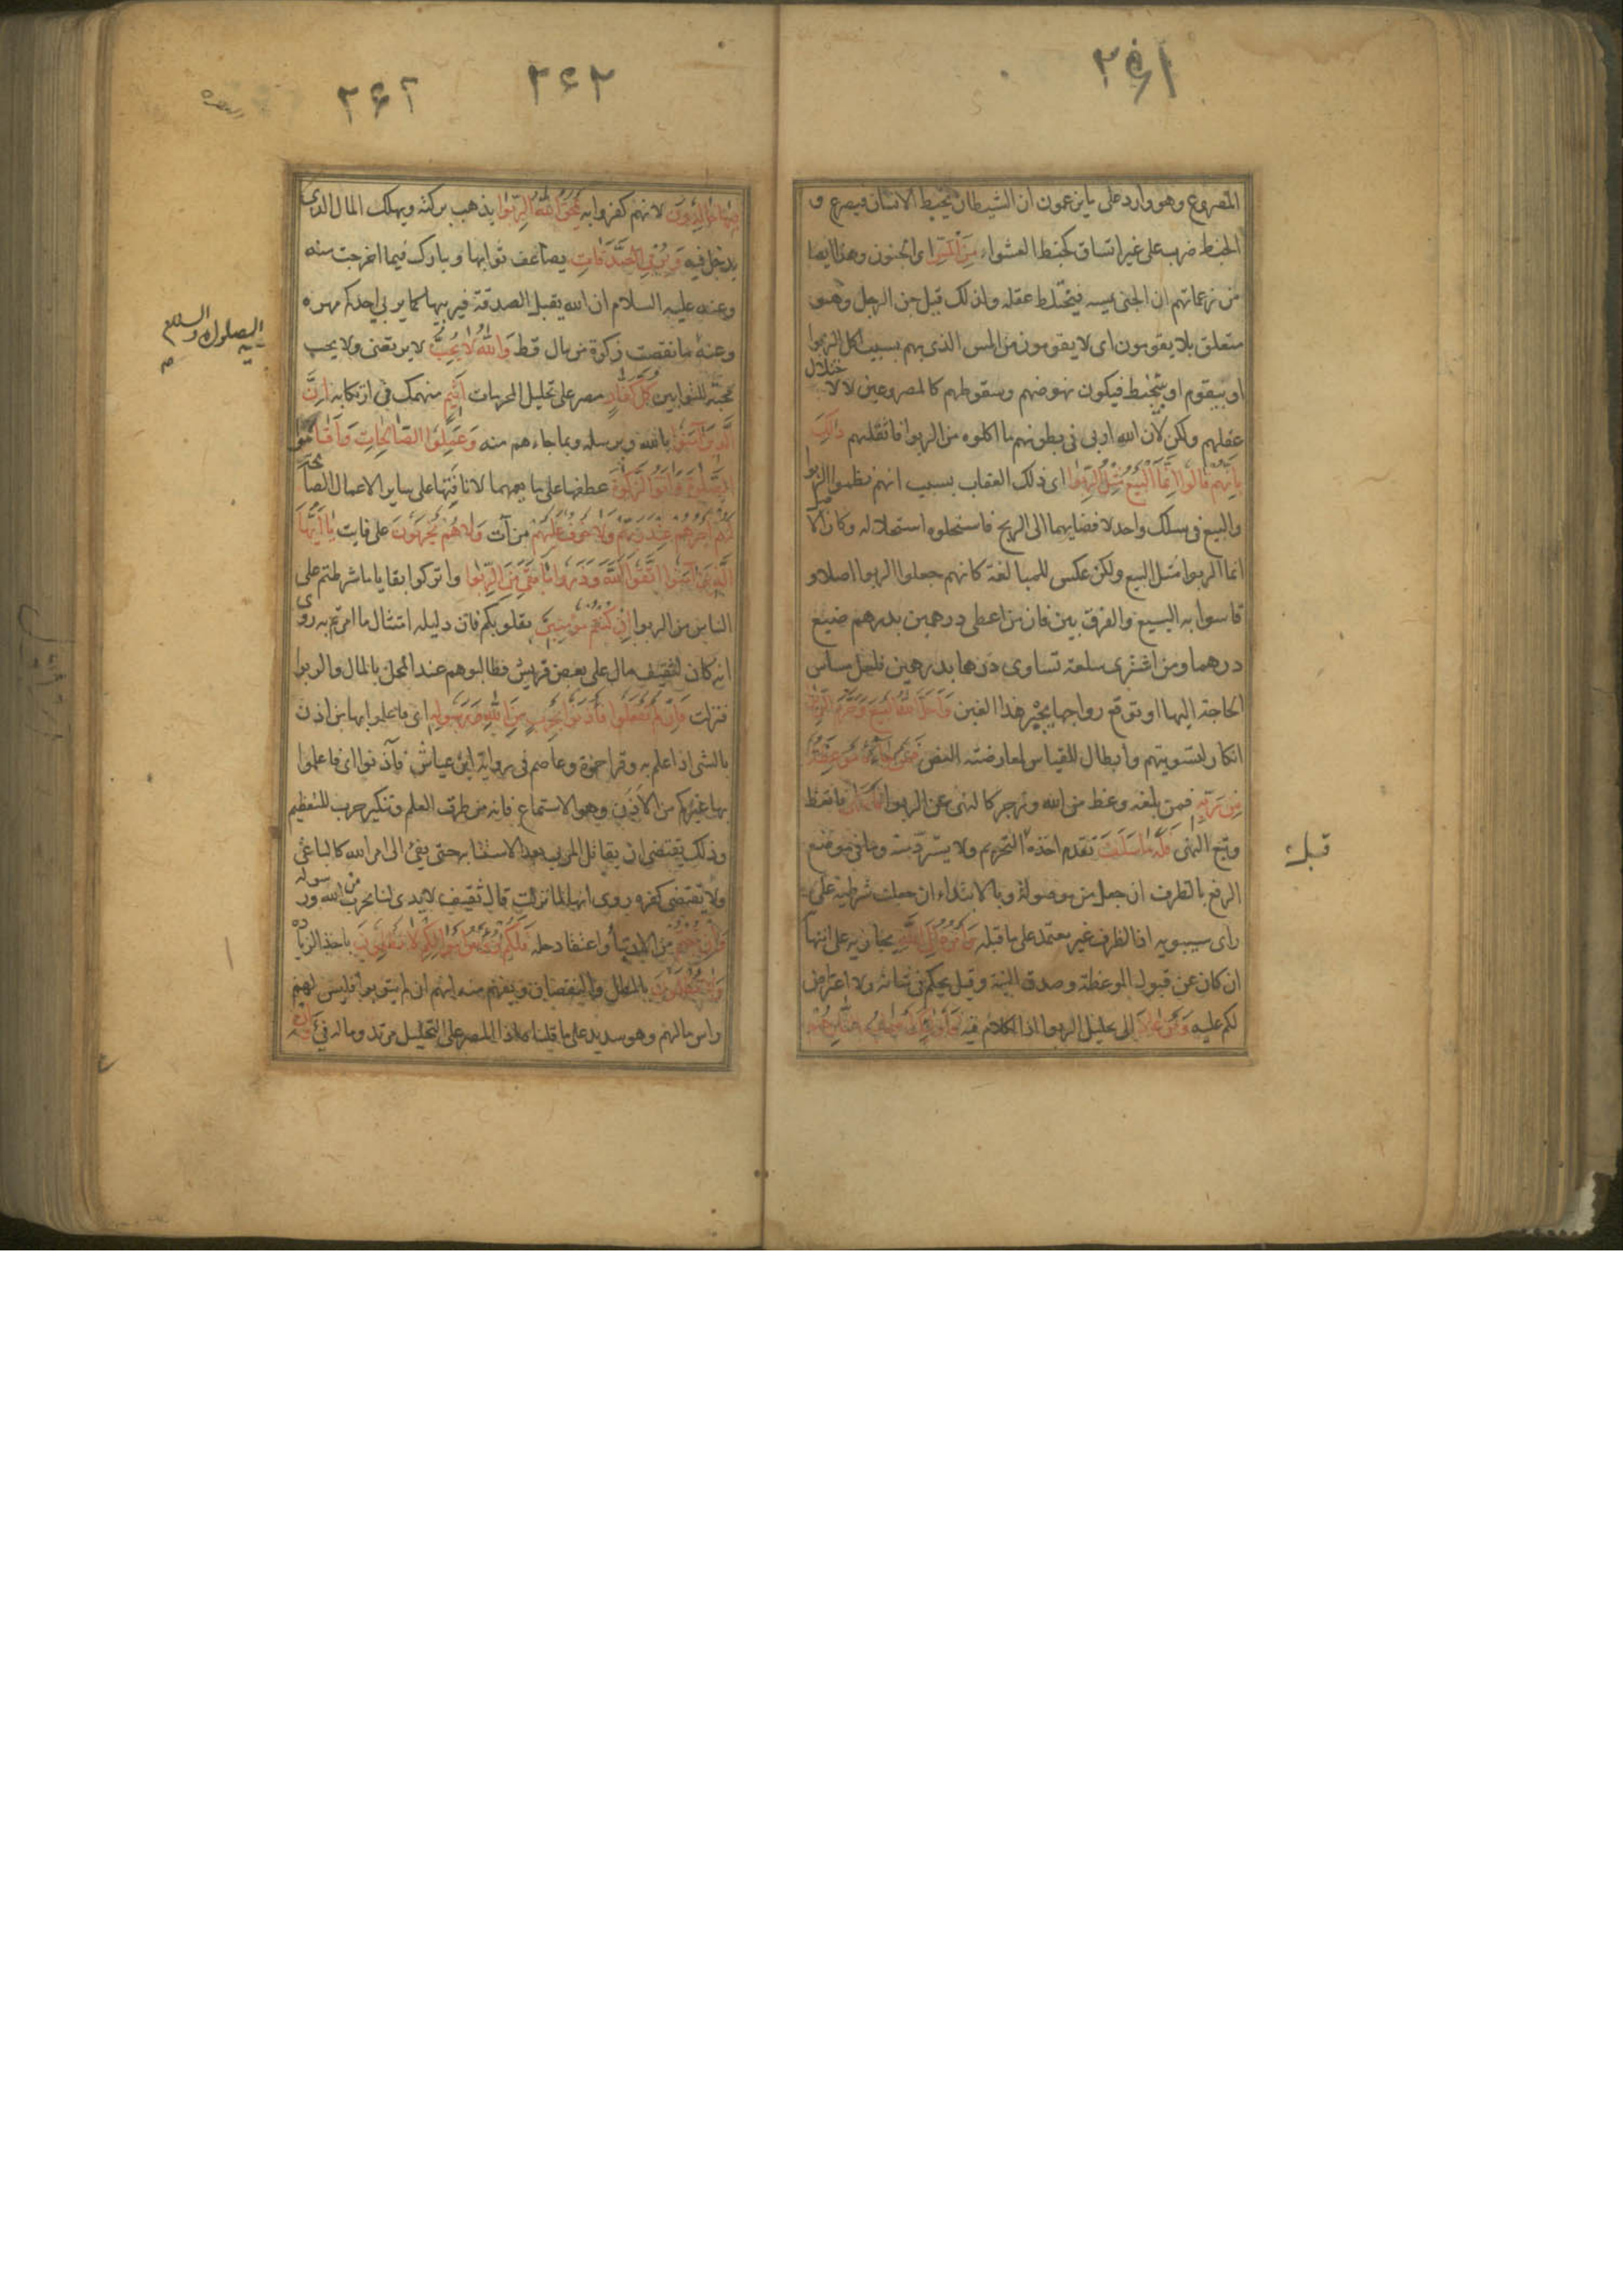 ٢٦١
المصروع وهو وارد على ما يزعمون ان الشيطان يخبط الانسان فيصرع و
الخبط ضرب على غير اتساق كخبط العشواء مِنَ الْمَسِّ اى الجنون وهذا ايضا
من زعماتهم ان الجنى يمسه فيختلط عقله ولذلك قيل جن الرجل وهو
متعلق بلا يقومون اى لا يقومون من المس الذى بهم بسبب اكل الربوا
او بيقوم او بيتخبط فيكون نهوضهم وسقوطهم كالمصروعين لا لاختلال
عقلهم ولكن لان الله اربى فى بطونهم ما اكلوه من الربوا فاثقلهم ذٰلِكَ
بِاَنَّهُمْ قَالُوا اِنَّمَا الْبَيْعُ مِثْلُ الرِّبٰوا اى ذلك العقاب بسبب انهم نظموا الربوا
والبيع فى سلك واحد لافضايهما الى الربح فاستحلوه استحلاله وكان الاصل
انما الربوا مثل البيع ولكن عكس للمبالغة كانهم جعلوا الربوا اصلا و
قاسوا به البيع والفرق بين فان من اعطى درهمين بدرهم ضيع
درهما ومن اشترى سلعة تساوى درهما بدرهمين فلعل مساس
الحاجة اليها او توقع رواجها يجبر هذا الغبن وَاَحَلَّ اللّٰهُ الْبَيْعَ وَحَرَّمَ الرِّبٰوا
انكار لتسويتهم وابطال للقياس لمعارضته النص فَمَنْ جَاءَهُ مَوْعِظَةٌ
مِنْ رَبِّهِ فمن بلغه وعظ من الله وزجر كالنهى عن الربوا فَانْتَهٰى فاتعظ
وتبع النهى فَلَهُ مَا سَلَفَ تقدم اخذه التحريم ولا يسترد منه وما فى موضع
قبل
الرفع بالظرف ان جعل من موصولة وبالابتداء ان جعلت شرطية على
راى سيبويه اذ الظرف غير معتمد على ما قبله وَاَمْرُهُ اِلَى اللّٰهِ يجازيه على انتهائه
ان كان عن قبول الموعظة وصدق النية وقيل يحكم فى شانه ولا اعتراض
لكم عليه وَمَنْ عَادَ الى تحليل الربوا اذ الكلام فيه فَاُولٰئِكَ اَصْحَابُ النَّارِ هُمْ
٢٦٢
٢٦٢
فِيهَا خَالِدُونَ لانهم كفروا به يَمْحَقُ اللّٰهُ الرِّبٰوا يذهب بركته ويهلك المال الذى
يدخل فيه وَيُرْبِى الصَّدَقَاتِ يضاعف ثوابها ويبارك فيما اخرجت منه
وعنه عليه السلام ان الله يقبل الصدقة فيربيها كما يربى احدكم مهره
وعنه ما نقصت زكوة من مال قط وَاللّٰهُ لَا يُحِبُّ لا يرتضى ولا يحب
عليه الصلوة والسلام
محبته للتوابين كُلَّ كَفَّارٍ مصر على تحليل المحرمات اَثِيمٍ منهمك فى ارتكابه اِنَّ
الَّذِينَ آمَنُوا بالله وبرسله وبما جاءهم منه وَعَمِلُوا الصَّالِحَاتِ وَاَقَامُوا
الصَّلٰوةَ وَآتَوُا الزَّكٰوةَ عطفها على ما يعمهما لانافتها على ساير الاعمال الصالحة
لَهُمْ اَجْرُهُمْ عِنْدَ رَبِّهِمْ وَلَا خَوْفٌ عَلَيْهِمْ من آت وَلَا هُمْ يَحْزَنُونَ على فايت يَا اَيُّهَا
الَّذِينَ آمَنُوا اتَّقُوا اللّٰهَ وَذَرُوا مَا بَقِىَ مِنَ الرِّبٰوا واتركوا بقايا ما شرطتم على
الناس من الربوا اِنْ كُنْتُمْ مُؤْمِنِينَ بقلوبكم فان دليله امتثال ما امرتم به روى
انه كان لثقيف مال على بعض قريش فطالبوهم عند المحل بالمال والربوا
فنزلت فَاِنْ لَمْ تَفْعَلُوا فَأْذَنُوا بِحَرْبٍ مِنَ اللّٰهِ وَرَسُولِهِ اى فاعلموا بها من اذن
بالشى اذا علم به وقرا حمزة وعاصم فى رواية ابن عياش فآذنوا اى فاعلموا
بها غيركم من الاذن وهو الاستماع فانه من طرق العلم وتنكير حرب للتعظيم
وذلك يقتضى ان يقاتل المربى بعد الاستتابة حتى يفئ الى امر الله كالباغى
ولا يقتضى كفره روى انها لما نزلت قال ثقيف لا يدى لنا بحرب من الله ورسوله
وَاِنْ تُبْتُمْ من الارتباء واعتقاد حله فَلَكُمْ رُؤُسُ اَمْوَالِكُمْ لَا تَظْلِمُونَ باخذ الزيادة
وَلَا تُظْلَمُونَ بالمطل والنقصان ويفهم منه انهم ان لم يتوبوا فليس لهم
راس مالهم وهو سديد على ما قلناه اذ المصر على التحليل مرتد وماله فئ وَاِنْ